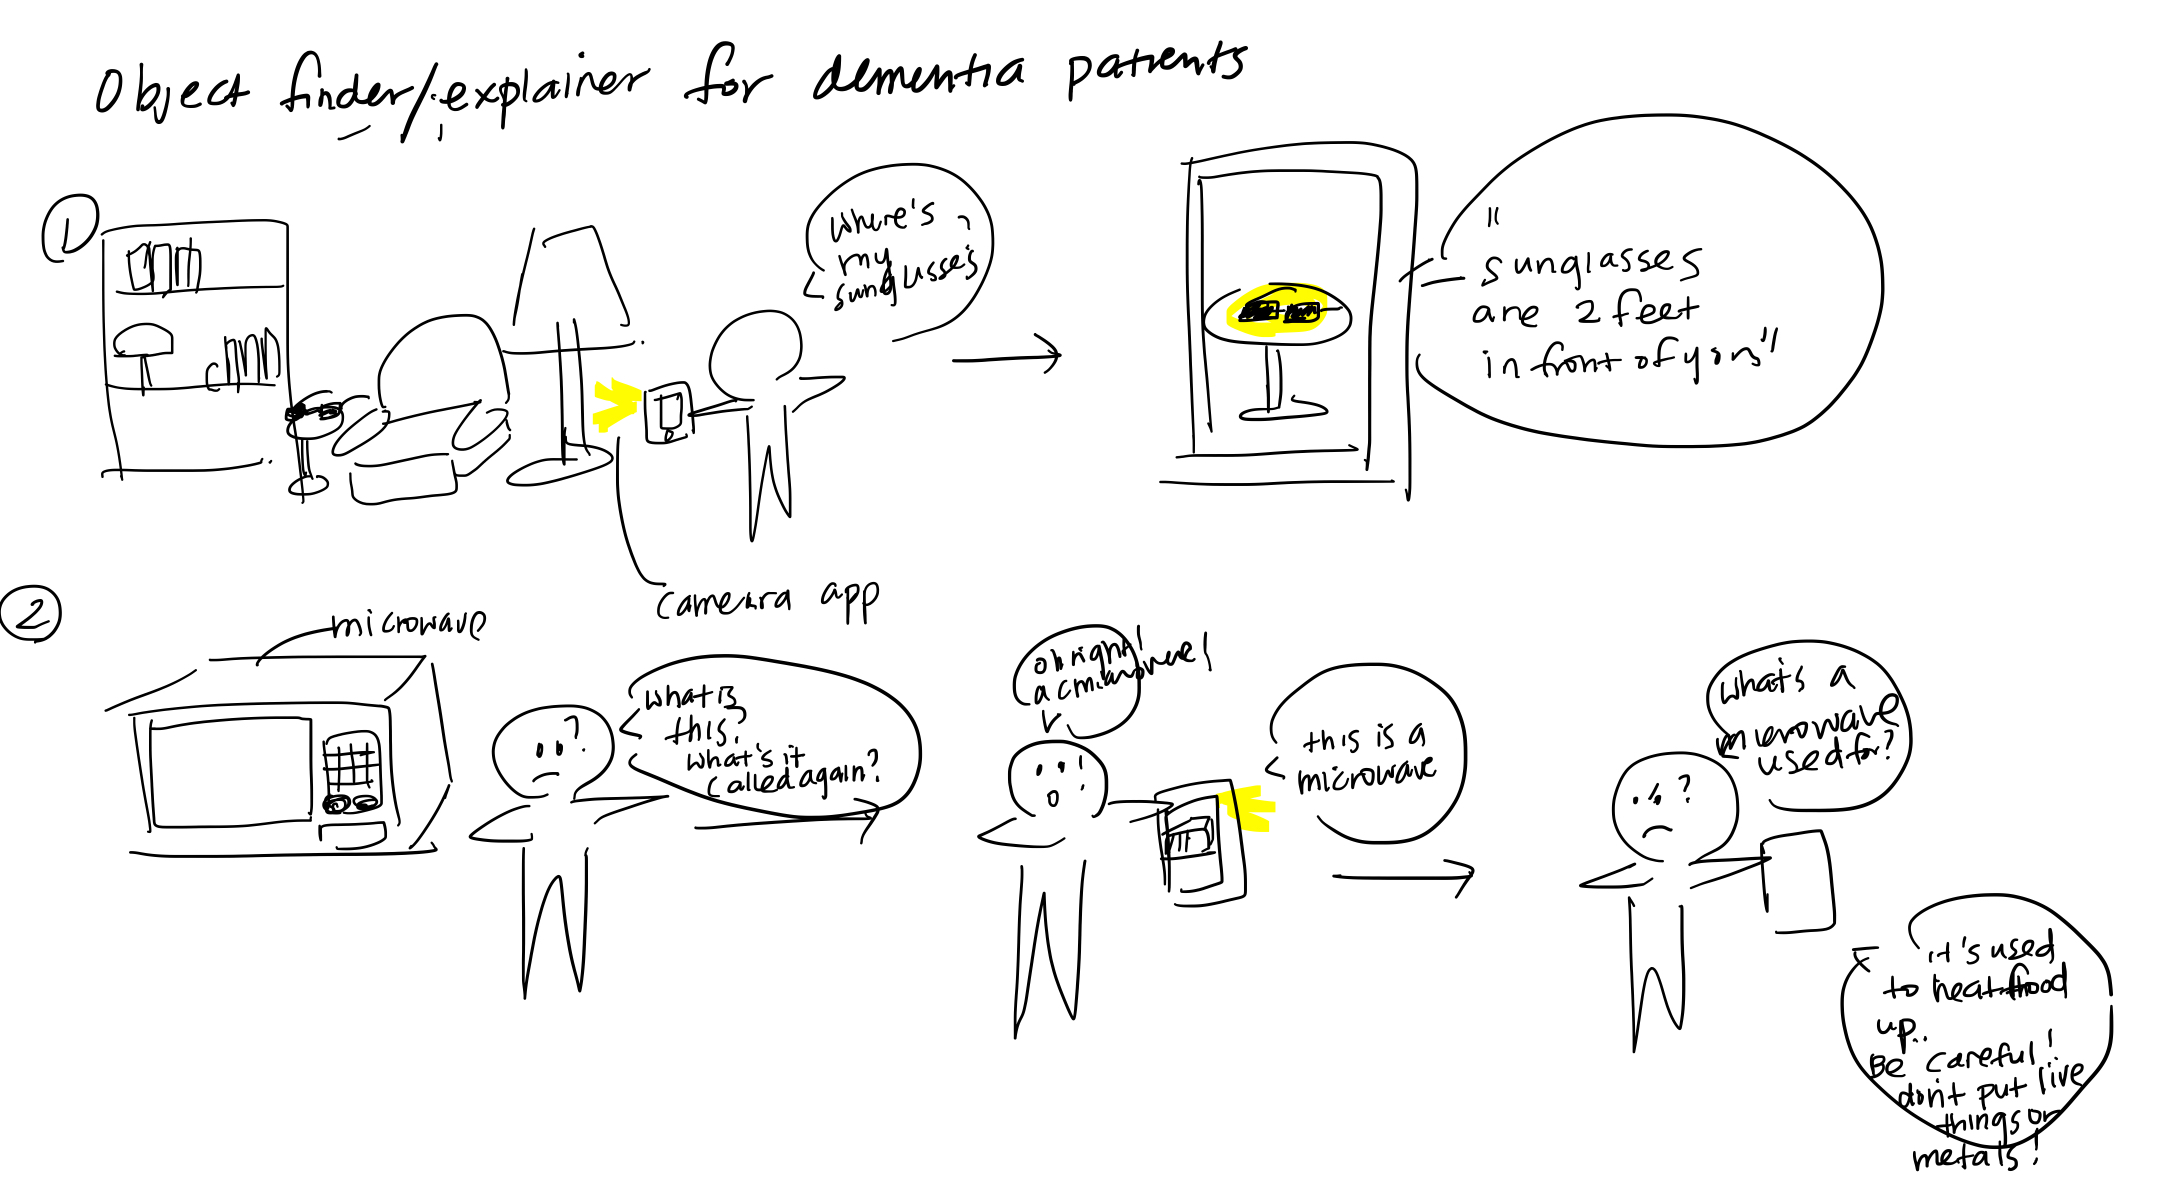 Object finder/explainer for dementia patients
1
where's
my
sunglusses?
"
sunglasses
are 2 feet
in front of you"
camera app
2
microwave
what is
this?
what's it
called again?
?
oh right!
a microwave!
!
this is a
microwave
what's a
microwave
used for?
?
it's used
to heat food
up..
Be careful!
don't put live
things or
metals!